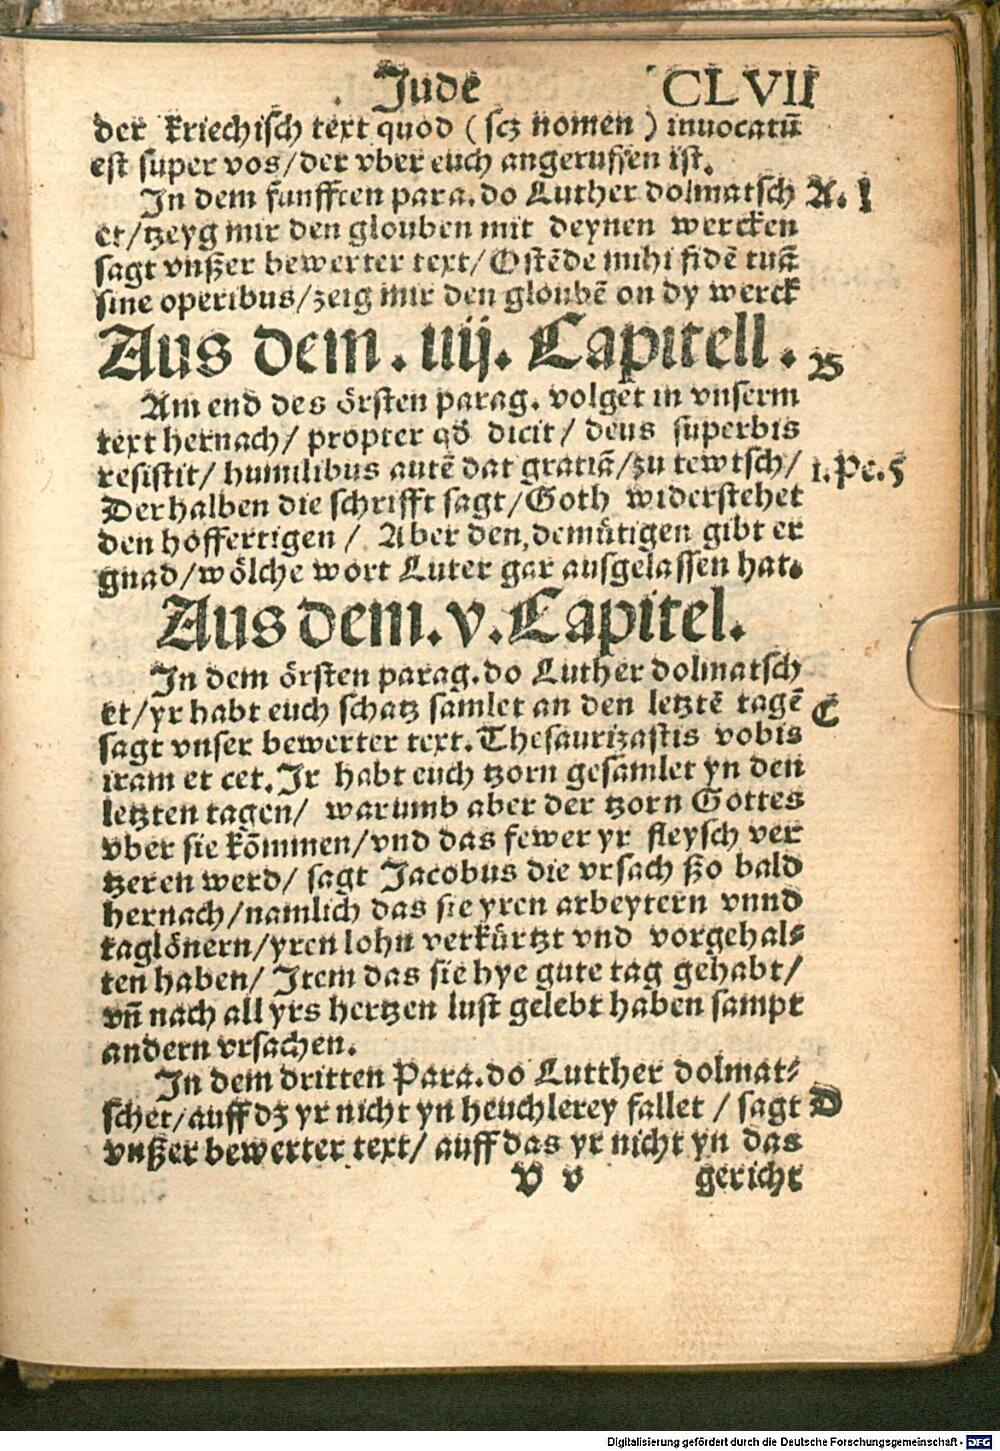 Jude CLVII
der kriechisch text quod ( scz nomen ) inuocatū
est super vos/der vber euch angeruffen ist.
In dem funfften para.do Luther dolmatsch A. I
et/tzeyg mir den glouben mit deynen wercken
sagt vnßer bewerter text/Ostēde mihi fidē tuā
sine operibus/zeig mir den gloubē on dy werck
Aus dem.iiij.Capitell.
B
Am end des örsten parag. volget in vnserm
text hernach/ propter qď dicit/ deus superbis
resistit/ humilibus autē dat gratiā/zu tewtsch/ 1.Pe.5
Derhalben die schrifft sagt/Goth widerstehet
den hoffertigen/ Aber den,demütigen gibt er
gnad/wölche wort Luter gar ausgelassen hat.
Aus dem.v.Capitel.
In dem örsten parag.do Luther dolmatsch
et/yr habt euch schatz samlet an den letztē tagē C
sagt vnser bewerter text.Thesaurizastis vobis
iram et cet.Ir habt euch tzorn gesamlet yn den
letzten tagen/ warumb aber der tzorn Gottes
vber sie kōmmen/vnd das fewer yr fleysch ver
tzeren werd/ sagt Jacobus die vrsach ßo bald
hernach/namlich das sie yren arbeytern vnnd
taglönern/yren lohn verkürtzt vnd vorgehal⸗
ten haben/ Item das sie hye gute tag gehabt/
vn̄ nach all yrs hertzen lust gelebt haben sampt
andern vrsachen.
In dem dritten Para.do Lutther dolmat⸗
schet/auff dz yr nicht yn heuchlerey fallet / sagt D
vnßer bewerter text/ auff das yr nicht yn das
V v gericht
Digitalisierung gefördert durch die Deutsche Forschungsgemeinschaft - DFG